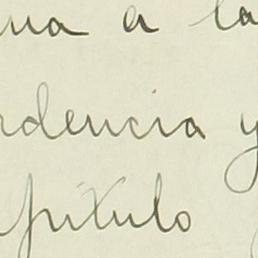 ua a la
ndencia y
pítulo